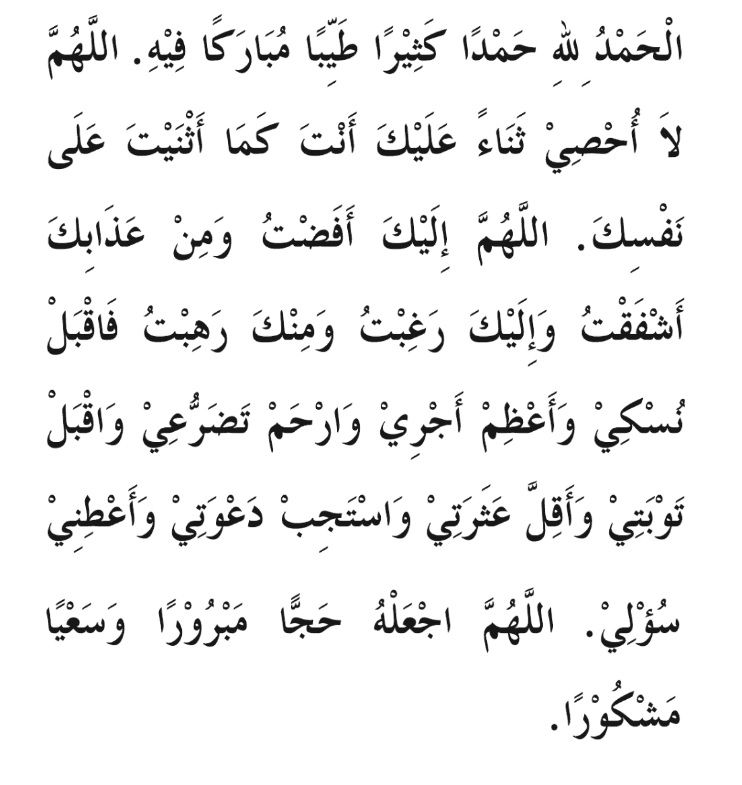 الْحَمْدُ لِلهِ حَمْدًا كَثِيْرًا طَيِّبًا مُبَارَكًا فِيْهِ. اللَّهُمَّ
لاَ أُحْصِيْ ثَنَاءً عَلَيْكَ أَنْتَ كَمَا أَثْنَيْتَ عَلَى
نَفْسِكَ. اللَّهُمَّ إِلَيْكَ أَفَضْتُ وَمِنْ عَذَابِكَ
أَشْفَقْتُ وَإِلَيْكَ رَغِبْتُ وَمِنْكَ رَهِبْتُ فَاقْبَلْ
نُسْكِيْ وَأَعْظِمْ أَجْرِيْ وَارْحَمْ تَضَرُّعِيْ وَاقْبَلْ
تَوْبَتِيْ وَأَقِلَّ عَثَرَتِيْ وَاسْتَجِبْ دَعْوَتِيْ وَأَعْطِنِيْ
سُؤْلِيْ. اللَّهُمَّ اجْعَلْهُ حَجًّا مَبْرُوْرًا وَسَعْيًا
مَشْكُوْرًا.